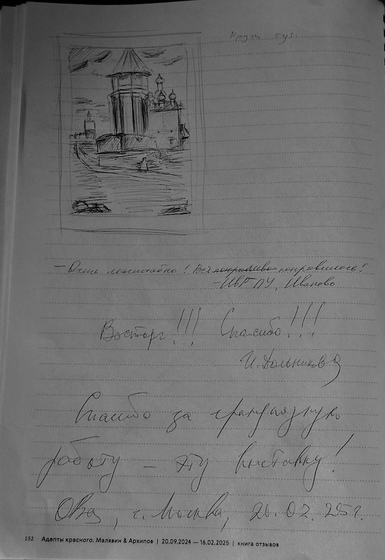 – Очень масштабно! Всё понравилось!
– ИвГПУ, Иваново
Восторг!!! Спасибо!!!
Спасибо за грандиозную
работу – эту выставку!
г. Москва, 20.02.25г.
132 Адепты красного. Малявин & Архипов | 20.09.2024 — 16.02.2025 | книга отзывов